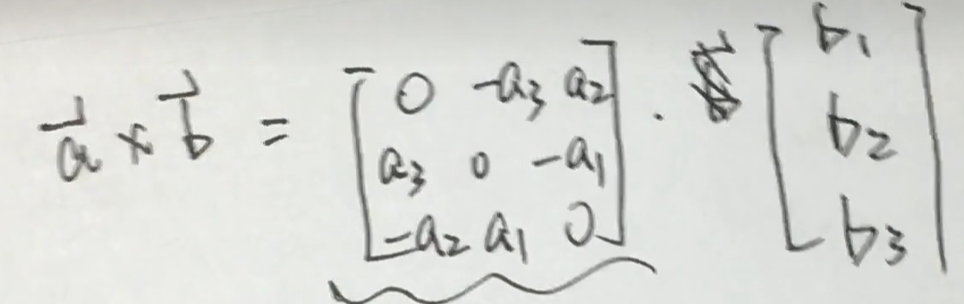 $\vec{a} \times \vec{b} = \begin{bmatrix} 0 & -a_3 & a_2 \\ a_3 & 0 & -a_1 \\ -a_2 & a_1 & 0 \end{bmatrix} \cdot \begin{bmatrix} b_1 \\ b_2 \\ b_3 \end{bmatrix}$